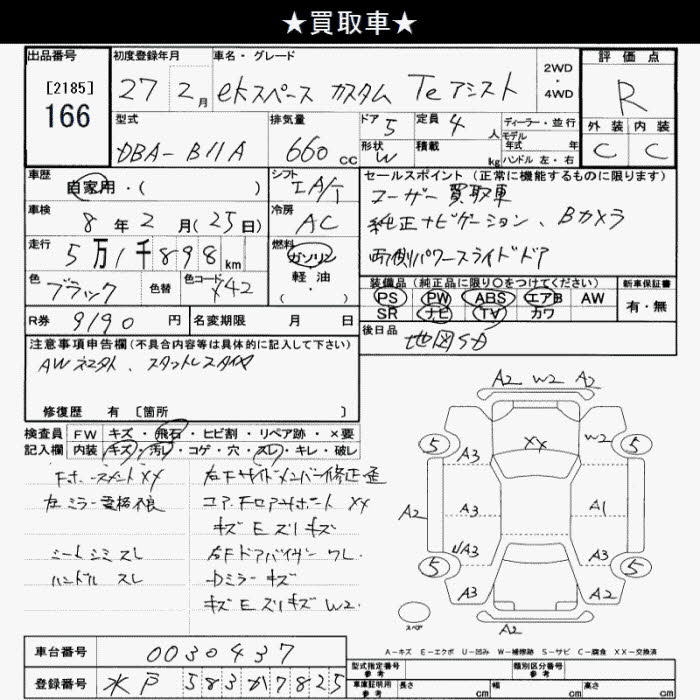 ★買取車★
出品番号
[2185]
166
初度登録年月
27 2月
車名・グレード
ekスペース カスタム Te アシスト
2WD
・
4WD
評価点
R
外装 内装
C C
型式
DBA-B11A
排気量
660cc
ドア 5
形状 W
定員 4人
積載 kg
ディーラー・並行
モデル年式 年
ハンドル 左・右
車歴
自家用・( )
車検
8年2月(25日)
走行
5万1千898km
色
ブラック
色替
色コード
X42
シフト
IA/T
冷房
AC
燃料
ガソリン
軽・油
( ・ )
セールスポイント(正常に機能するものに限ります)
ユーザー買取車
純正ナビゲーション、Bカメラ
両側パワースライドドア
装備品(純正品に限り○をつけてください)
PS PW ABS エアB AW
SR ナビ TV カワ
新車保証書
有・無
後日品
地図SD
R券 9190円
名変期限 月 日
注意事項申告欄(不具合内容等は具体的に記入して下さい)
AWキズ大、スタットレスタイヤ
修復歴 有 [箇所 ]
検査員
記入欄
FW キズ・飛石・ヒビ割・リペア跡・×要
内装 キズ・汚レ・コゲ・穴・スレ・キレ・破レ
右Fサイドメンバー修正歪
コア、Fロアサポート XX
キズEズリキズ
シートシミスレ
右Fドアバイザーワレ
ハンドル スレ
Dミラーキズ
キズEズリキズW2
A2 W2 A2
5 5
XX W2
A3
A2 A3 A1
A3 A3
5 5
A3 A2
スペア
A2
A-キズ E-エクボ U-凹み W-補修跡 S-サビ C-腐食 XX-交換済
車台番号 0030437
登録番号 水戸 583か7825
型式指定番号
類別区分番号
参考
車庫証明用
参考
長さ cm 幅 cm 高さ cm